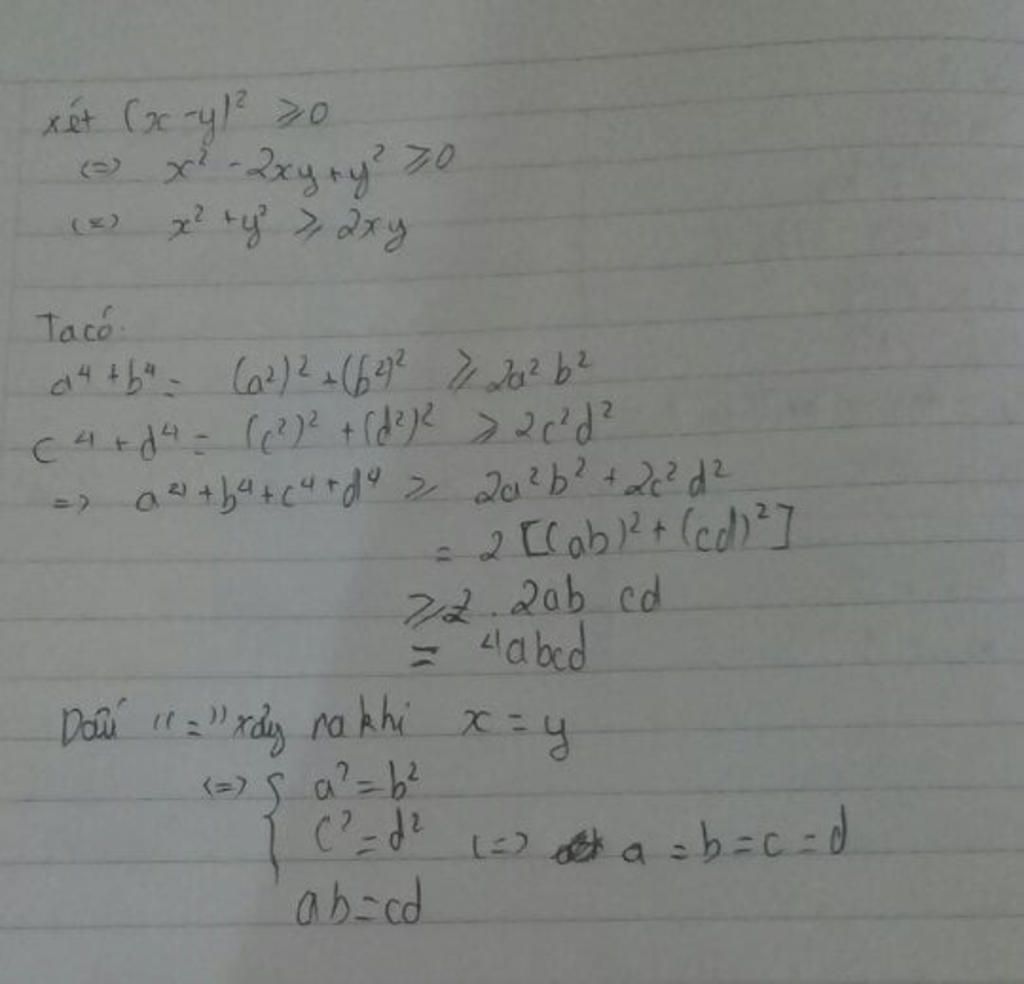 xét (x-y)² ≥0
<=> x² - 2xy + y² ≥0
<=> x² + y² ≥ 2xy
Ta có:
a⁴ + b⁴ = (a²)² + (b²)² ≥ 2a² b²
c⁴ + d⁴ = (c²)² + (d²)² ≥ 2c²d²
=> a⁴ + b⁴ + c⁴ + d⁴ ≥ 2a²b² + 2c²d²
= 2 [(ab)² + (cd)²]
≥ 2 . 2ab cd
= 4abcd
Dấu "=" xảy ra khi x = y
<=> { a² = b²
c² = d² <=> a = b = c = d
ab = cd